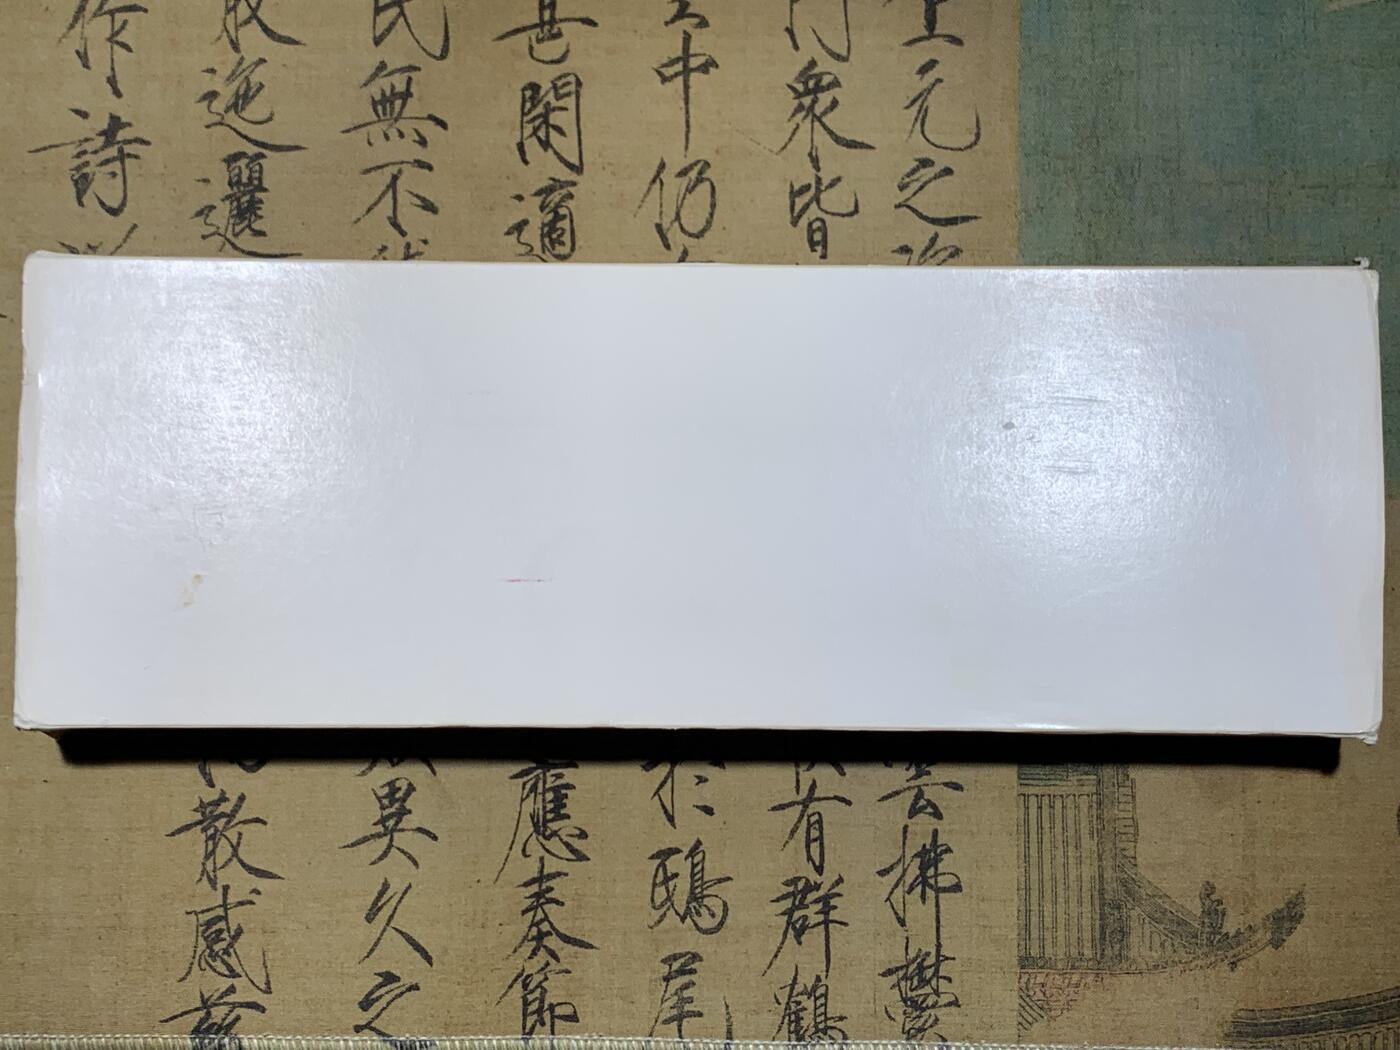 上元之雲拂鬱
門衆皆有群鶴
中仍於鴟尾
甚閑適應奏節
民無不異久之
散迤邐散感茲
作詩